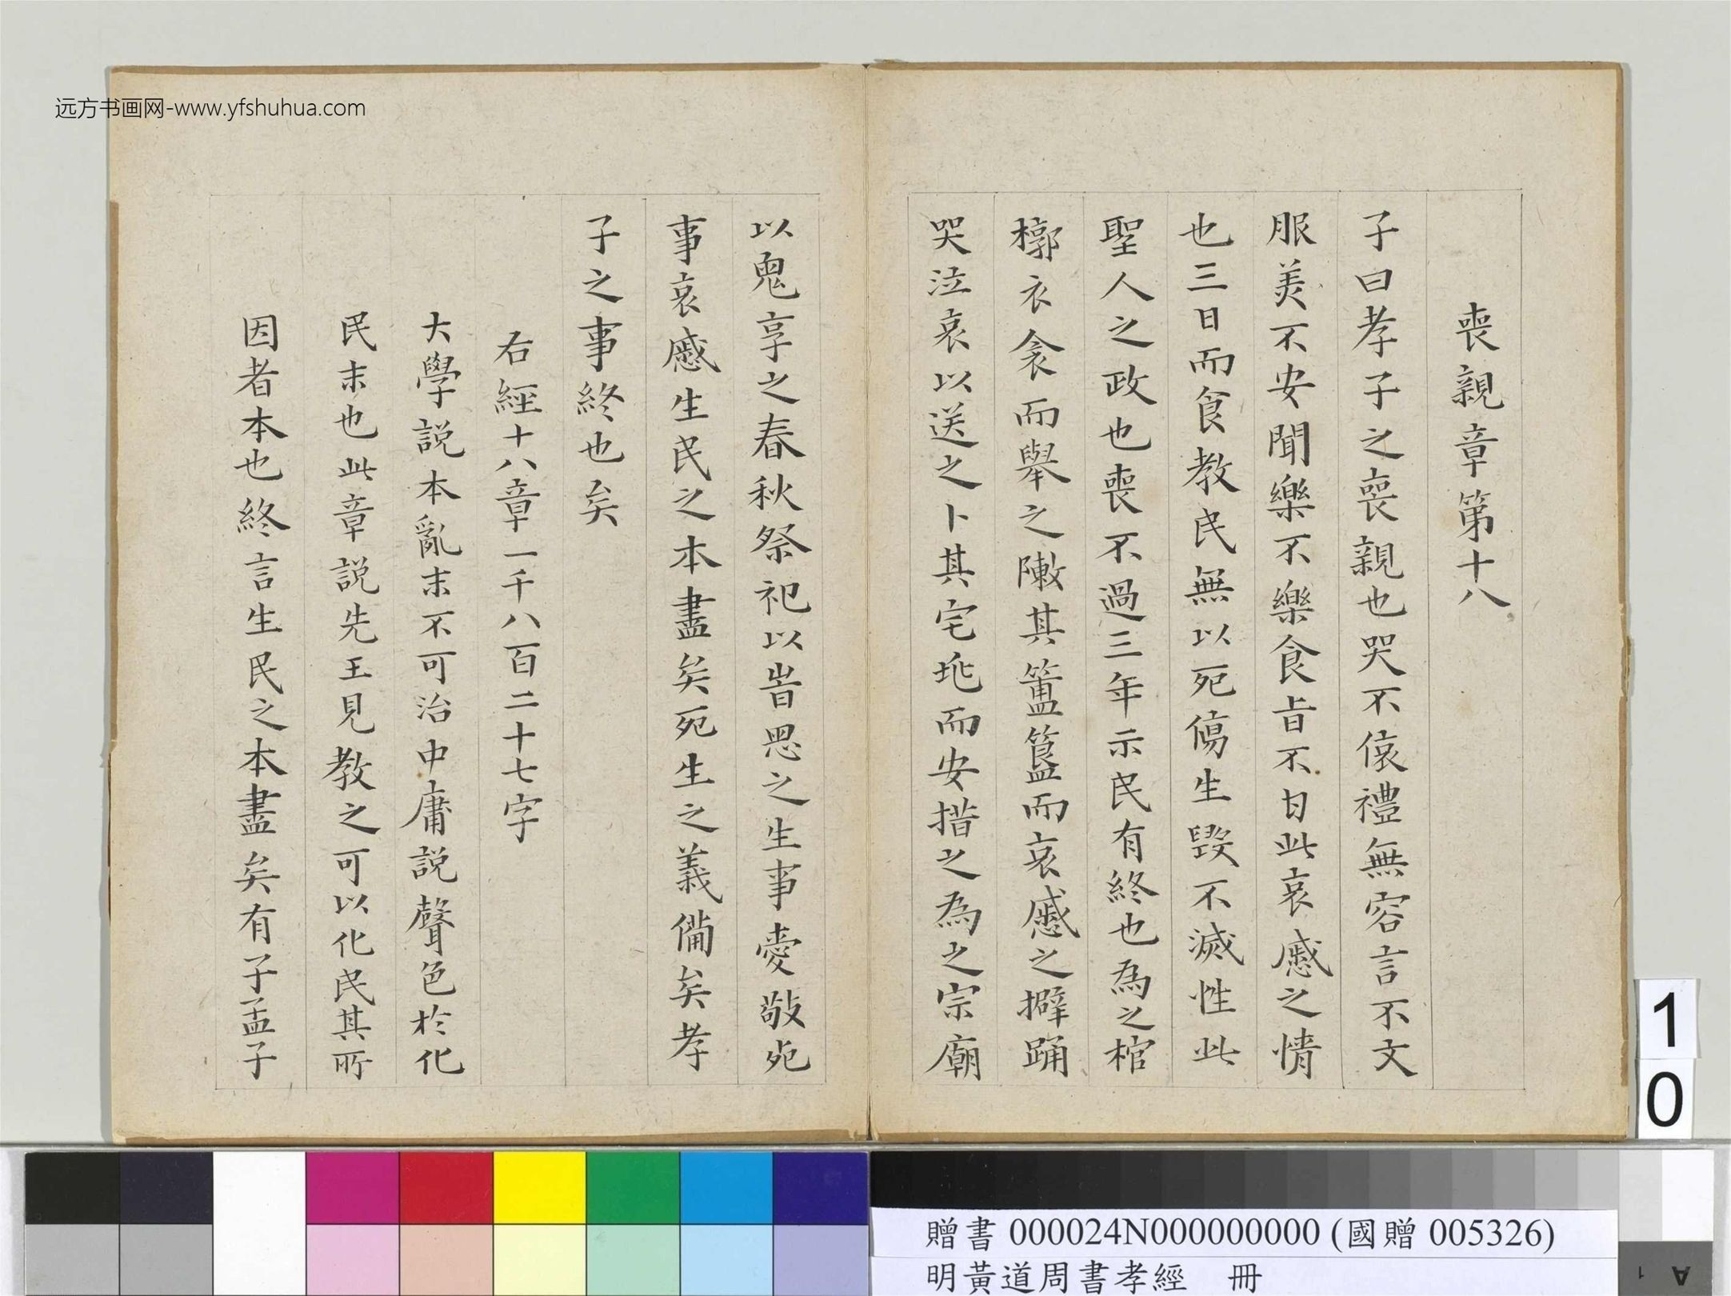 远方书画网-www.yfshuhua.com
喪親章第十八
子曰孝子之喪親也哭不偯禮無容言不文
服美不安聞樂不樂食旨不甘此哀慼之情
也三日而食教民無以死傷生毀不滅性此
聖人之政也喪不過三年示民有終也為之棺
槨衣衾而舉之陳其簠簋而哀慼之擗踊
哭泣哀以送之卜其宅兆而安措之為之宗廟
以鬼享之春秋祭祀以旹思之生事愛敬死
事哀慼生民之本盡矣死生之義備矣孝
子之事終也矣
右經十八章一千八百二十七字
大學説本亂末不可治中庸説聲色於化
民末也此章説先王見教之可以化民其所
因者本也終言生民之本盡矣有子孟子
10
贈書 000024N000000000 (國贈 005326)
明黃道周書孝經 冊
A 1